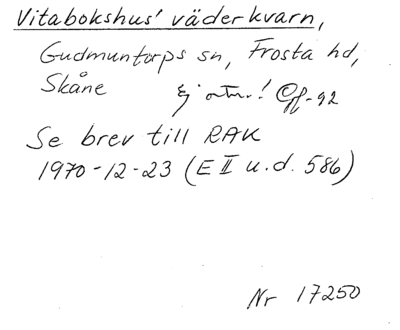 Vitabokshus' väderkvarn,
Gudmuntorps sn, Frosta hd,
Skåne Ej utm.! -92
Se brev till RAK
1970-12-23 (E II u.d. 586)
Nr 17250